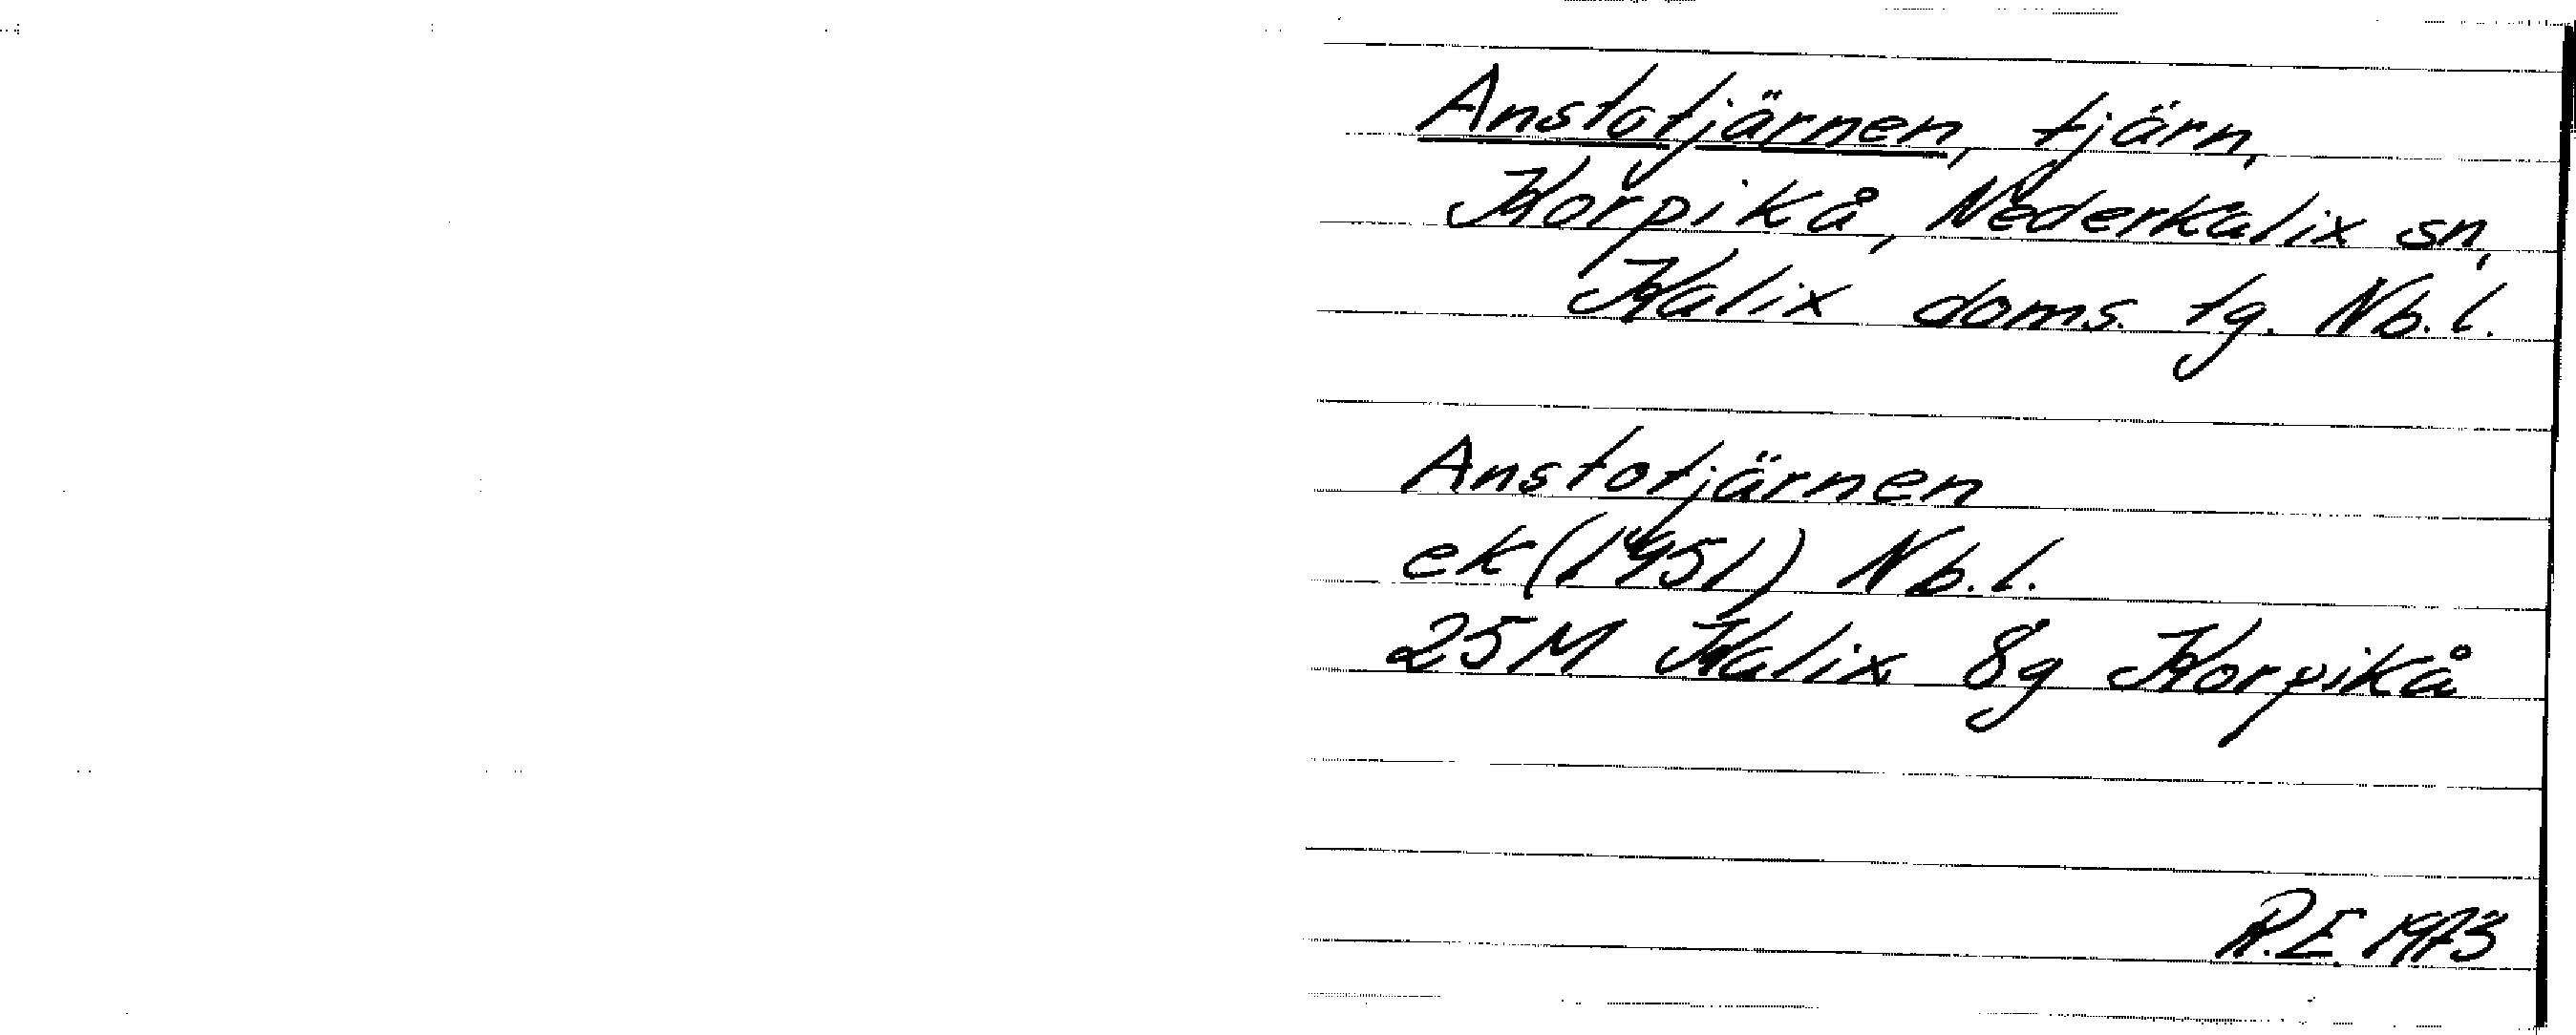 Anstotjärnen, tjärn,
Korpikå, Nederkalix sn,
Kalix doms. tg. Nb.l.
Anstotjärnen
ek (1951) Nb.l.
25M Kalix 8g Korpikå
R.E. 1973